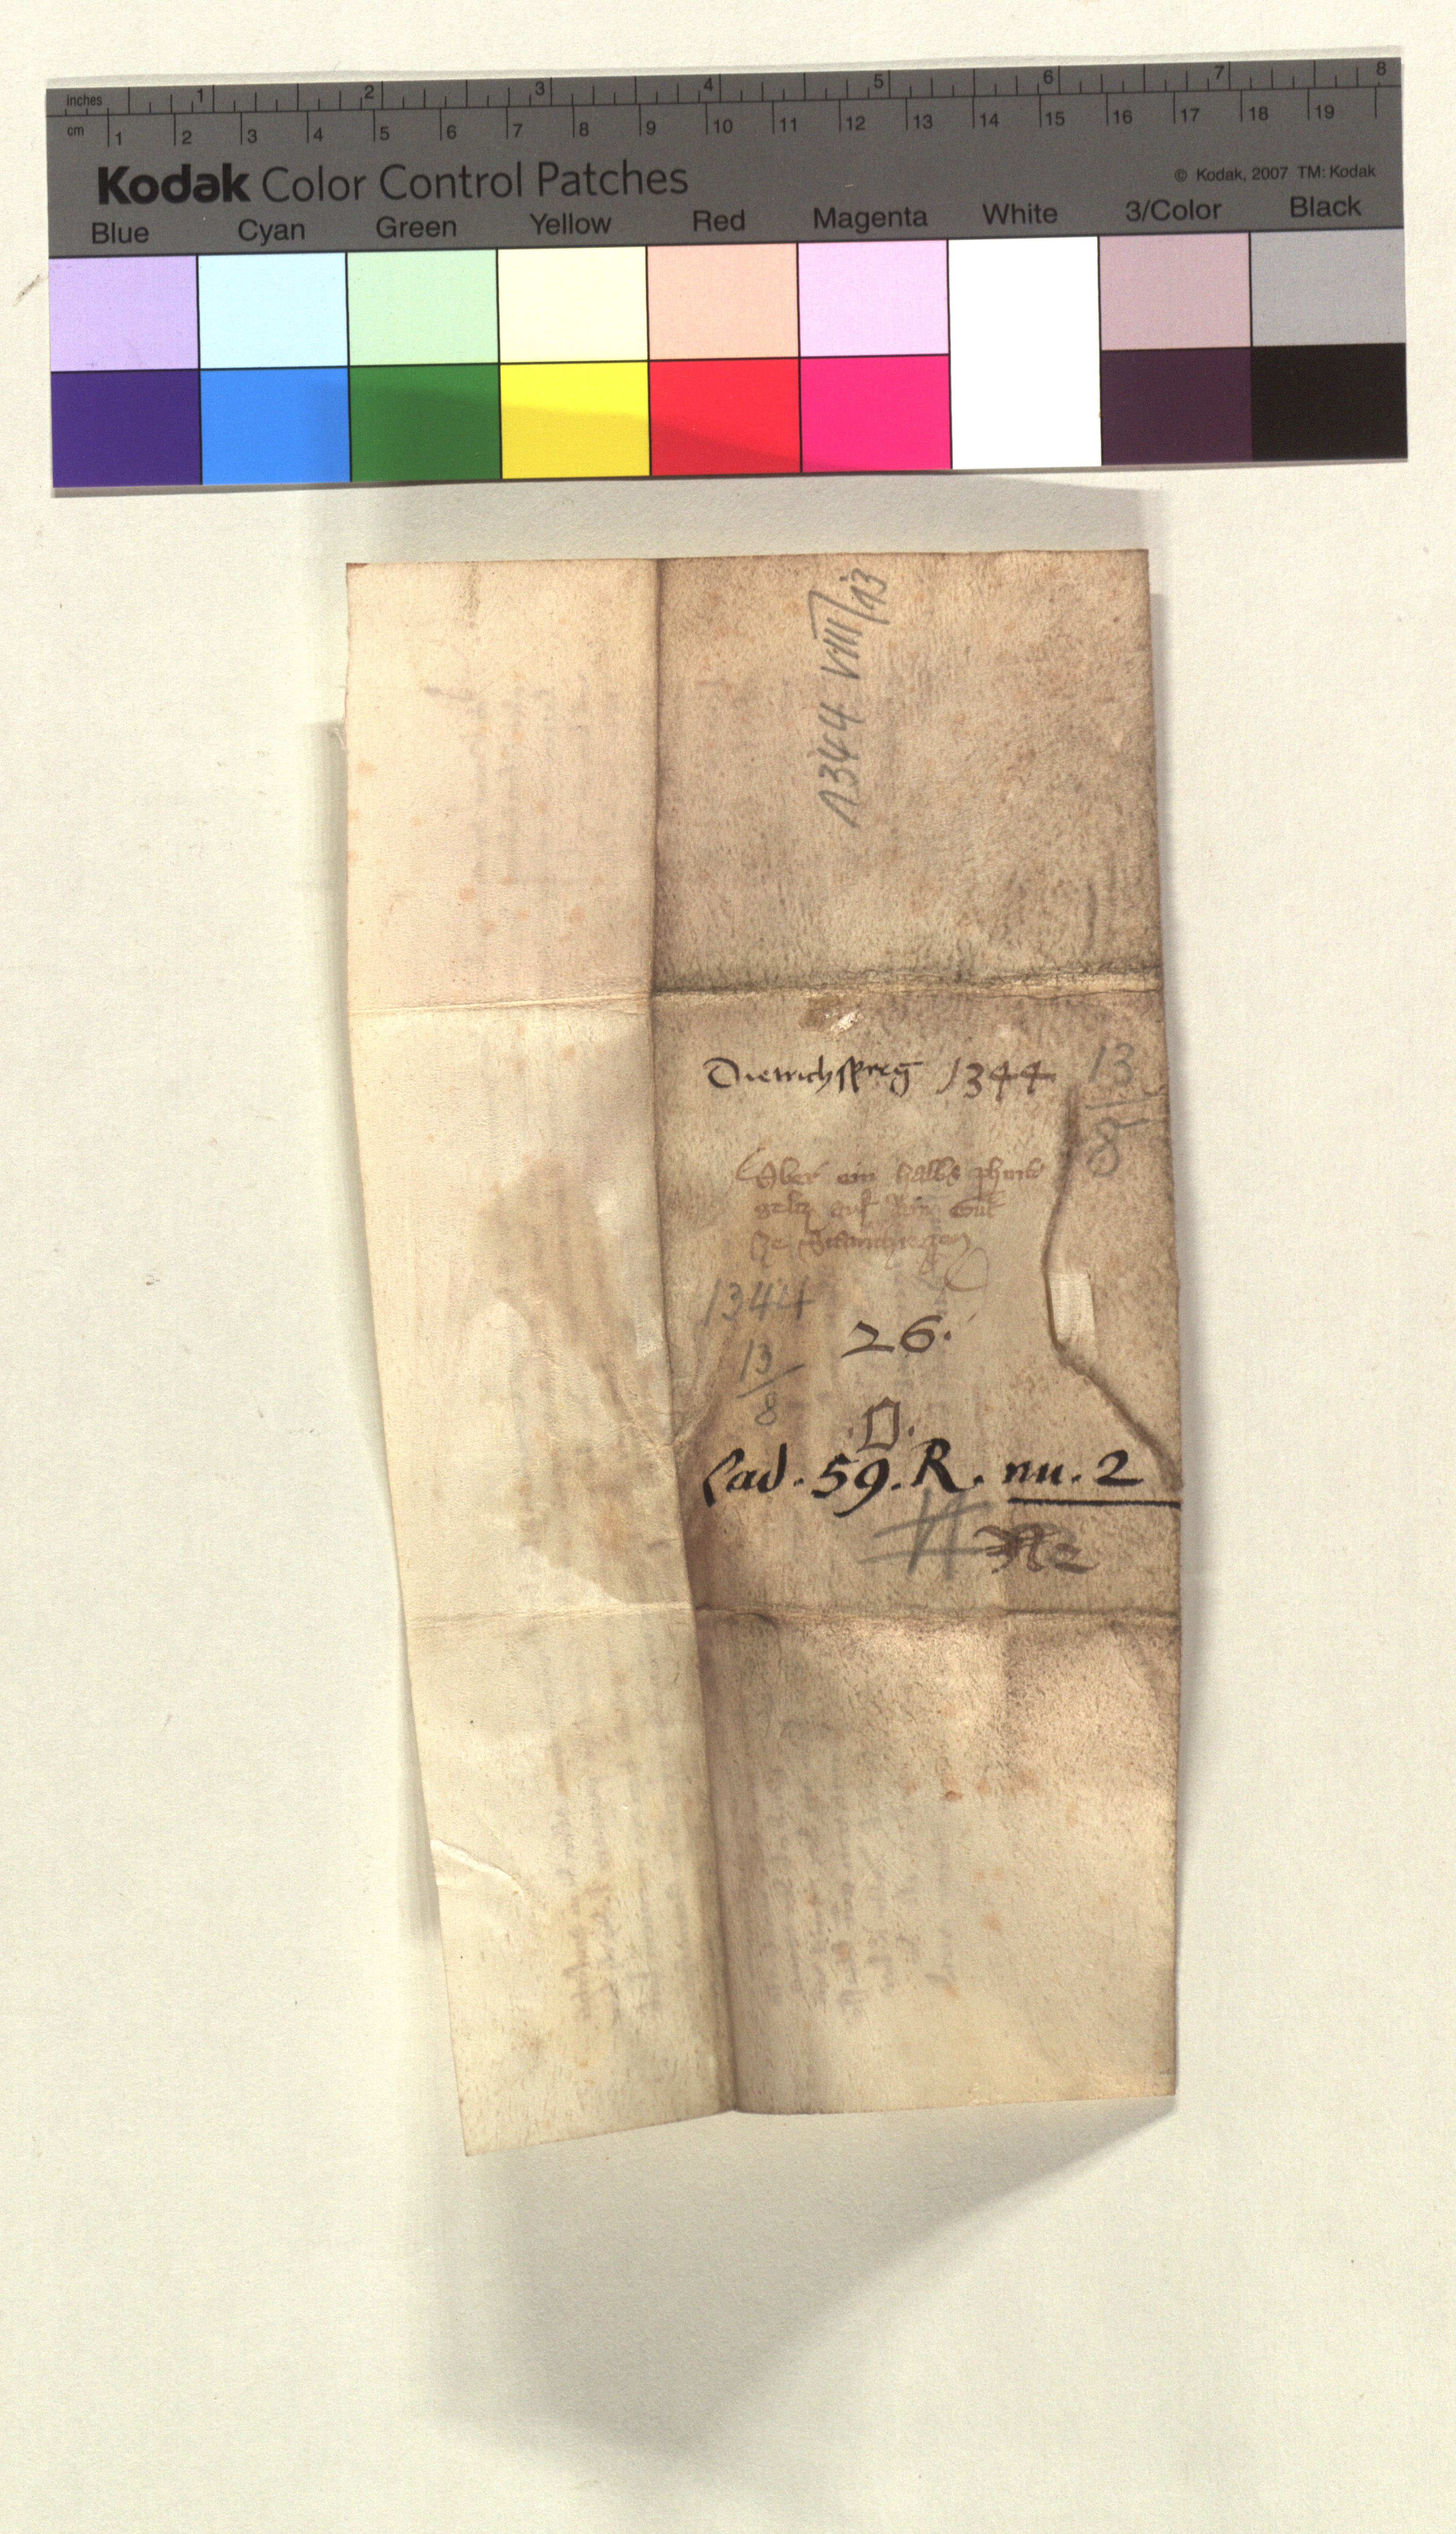 inches 1 2 3 4 5 6 7 8
cm 1 2 3 4 5 6 7 8 9 10 11 12 13 14 15 16 17 18 19
Kodak Color Control Patches
© Kodak, 2007 TM: Kodak
Blue Cyan Green Yellow Red Magenta White 3/Color Black
1344 VIII/13
Dietrichspreg 1344
13
8
Uber ein halbs phunt
geltz auf dem Gut
ze
1344
13
8
26.
.D.
Lad. 59. R. nu. 2